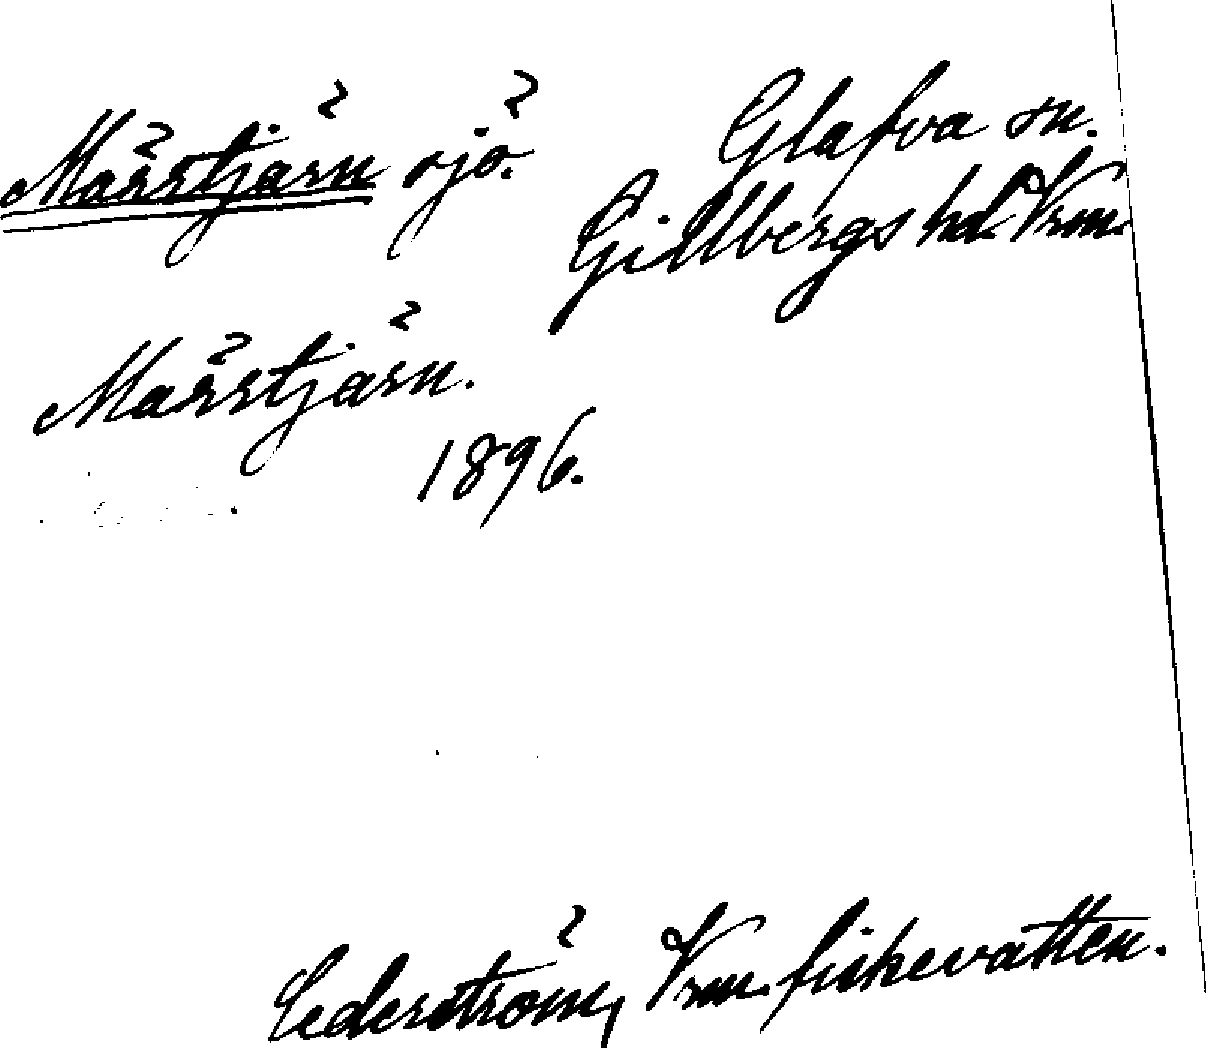 Mörstjärn sjö. Glafva sn.
Gillbergs hd. Vrm.
Märrstjärn.
1896.
Cederström, Vrm. fiskevatten.